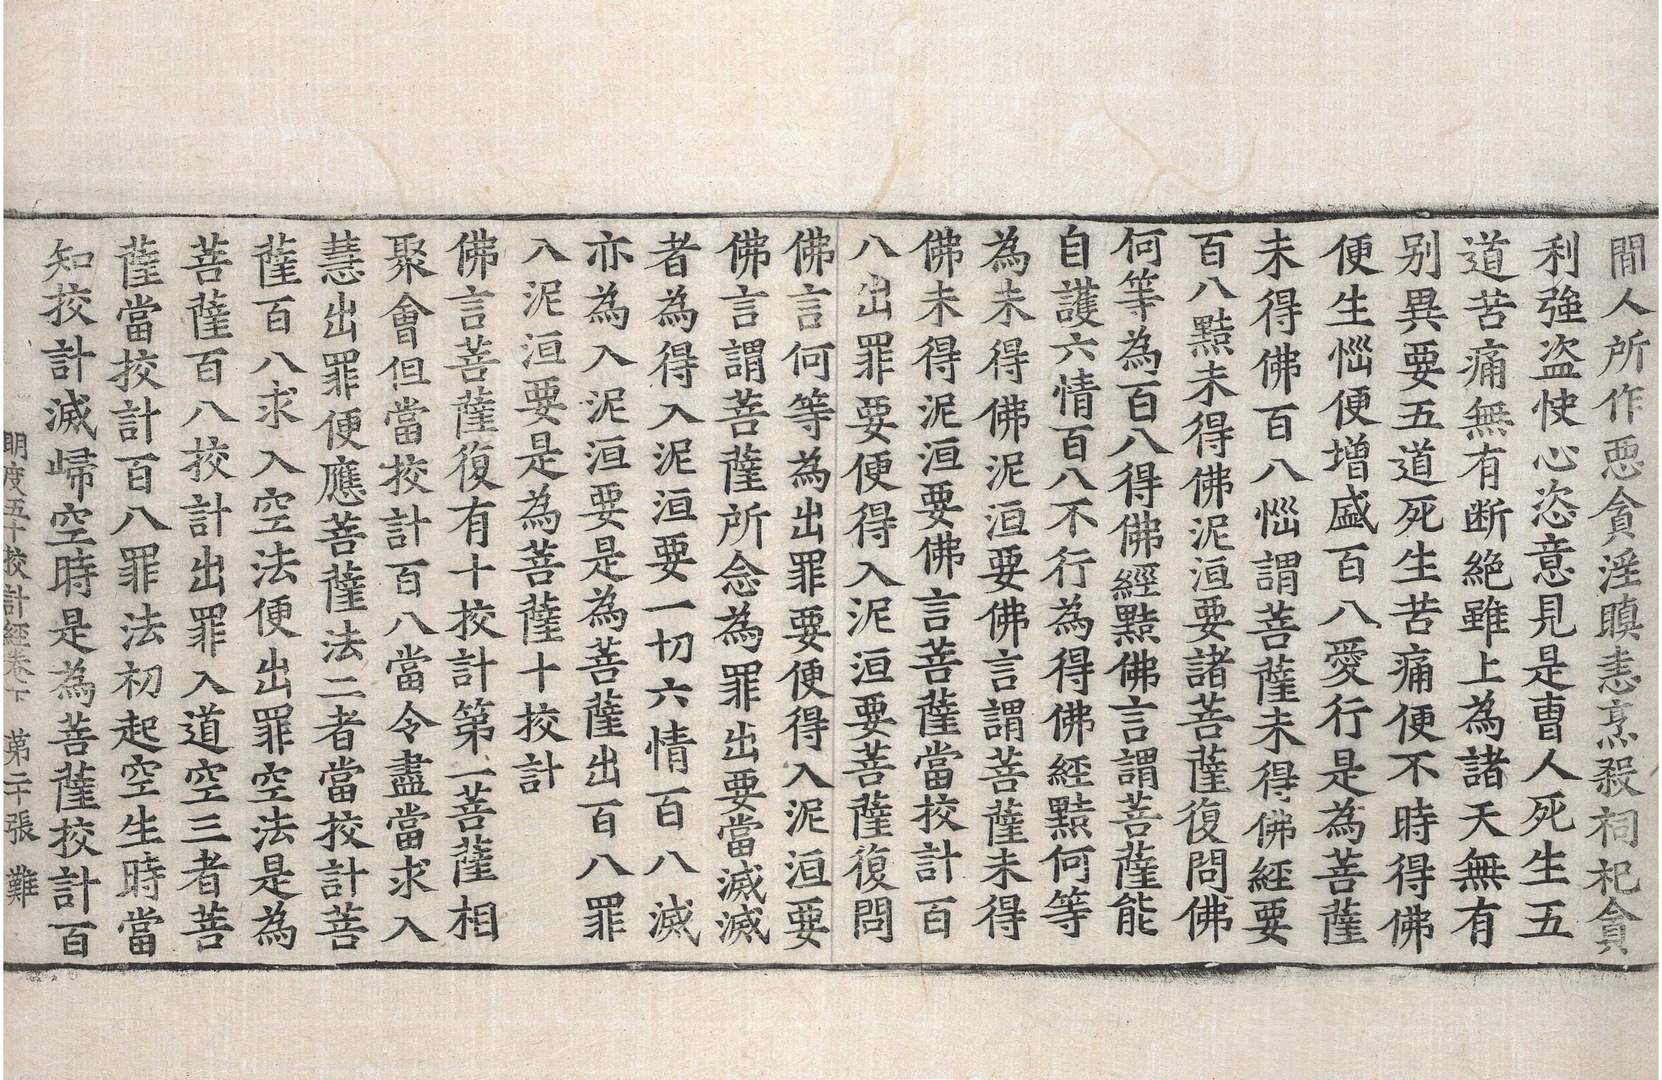 間人所作惡貪淫瞋恚烹殺祠祀貪
利強盜快心恣意見是曹人死生五
道苦痛無有断絕雖上為諸天無有
别異要五道死生苦痛便不時得佛
便生㤙便增盛百八愛行是為菩薩
未得佛百八㤙謂菩薩未得佛經要
百八黠未得佛泥洹要諸菩薩復問佛
何等為百八得佛經黠佛言謂菩薩能
自護六情百八不行為得佛經黠何等
為未得佛泥洹要佛言謂菩薩未得
佛未得泥洹要佛言菩薩當挍計百
八出罪要便得入泥洹要菩薩復問
佛言何等為出罪要便得入泥洹要
佛言謂菩薩所念為罪出要當滅滅
者為得入泥洹要一切六情百八滅
亦為入泥洹要是為菩薩出百八罪
入泥洹要是為菩薩十挍計
佛言菩薩復有十挍計第一菩薩相
聚會但當挍計百八當令盡當求入
慧出罪便應菩薩法二者當挍計菩
薩百八求入空法便出罪空法是為
菩薩百八挍計出罪入道空三者菩
薩當挍計百八罪法初起空生時當
知挍計滅歸空時是為菩薩挍計百
明度五十挍計經卷下　第二十張　難